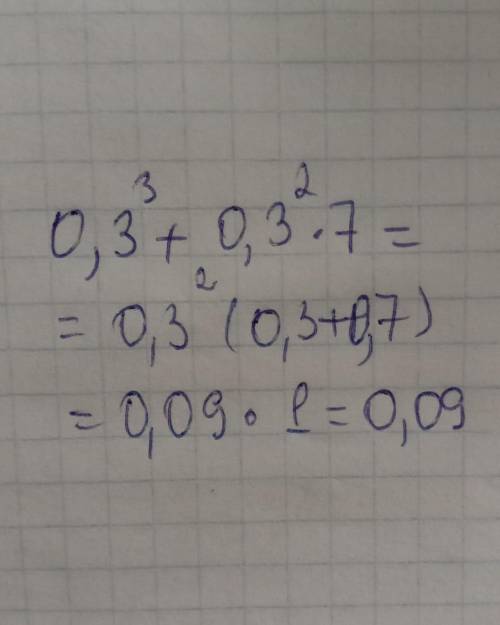 0,3³ + 0,3² · 7 =
= 0,3² (0,3+0,7)
= 0,09 · 1 = 0,09